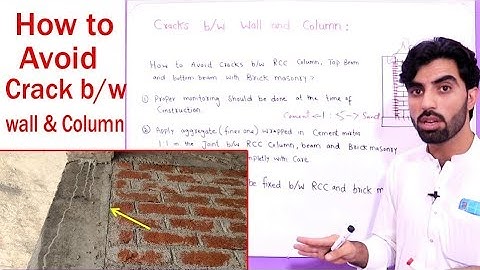 How to
Avoid
Crack b/w
wall & Column
Cracks b/w Wall and Column:
How to Avoid Cracks b/w RCC Column, Top Beam
and bottom beam with Brick masonry?
① Proper monitoring should be done at the time of
Construction.
Cement ← 1 : 5 → Sand
② Apply aggregate (fines one) wrapped in Cement
1:1 in the Joint b/w RCC Column, beam and Brick masonry
with Care
be fixed b/w RCC and brick